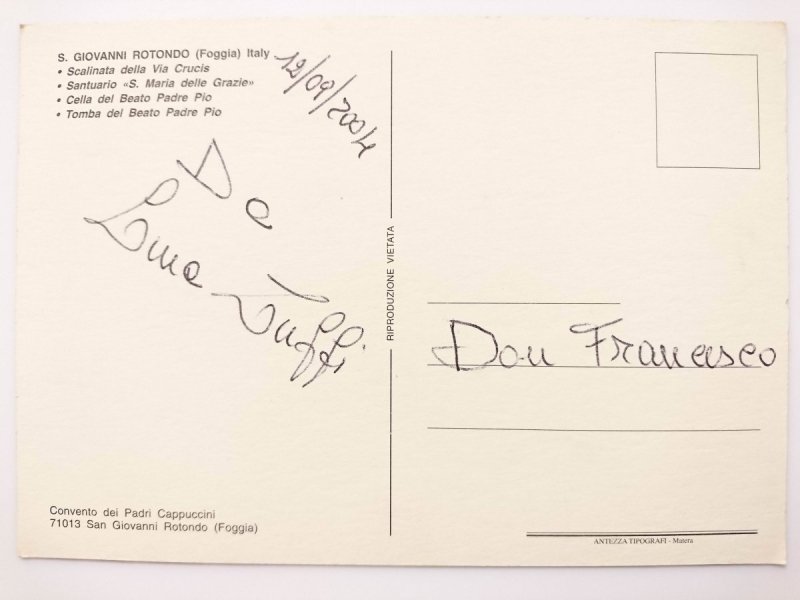 S. GIOVANNI ROTONDO (Foggia) Italy
• Scalinata della Via Crucis
• Santuario «S. Maria delle Grazie»
• Cella del Beato Padre Pio
• Tomba del Beato Padre Pio
12/09/2004
Da
Lina Zuffi
RIPRODUZIONE VIETATA
Don Francesco
Convento dei Padri Cappuccini
71013 San Giovanni Rotondo (Foggia)
ANTEZZA TIPOGRAFI - Matera